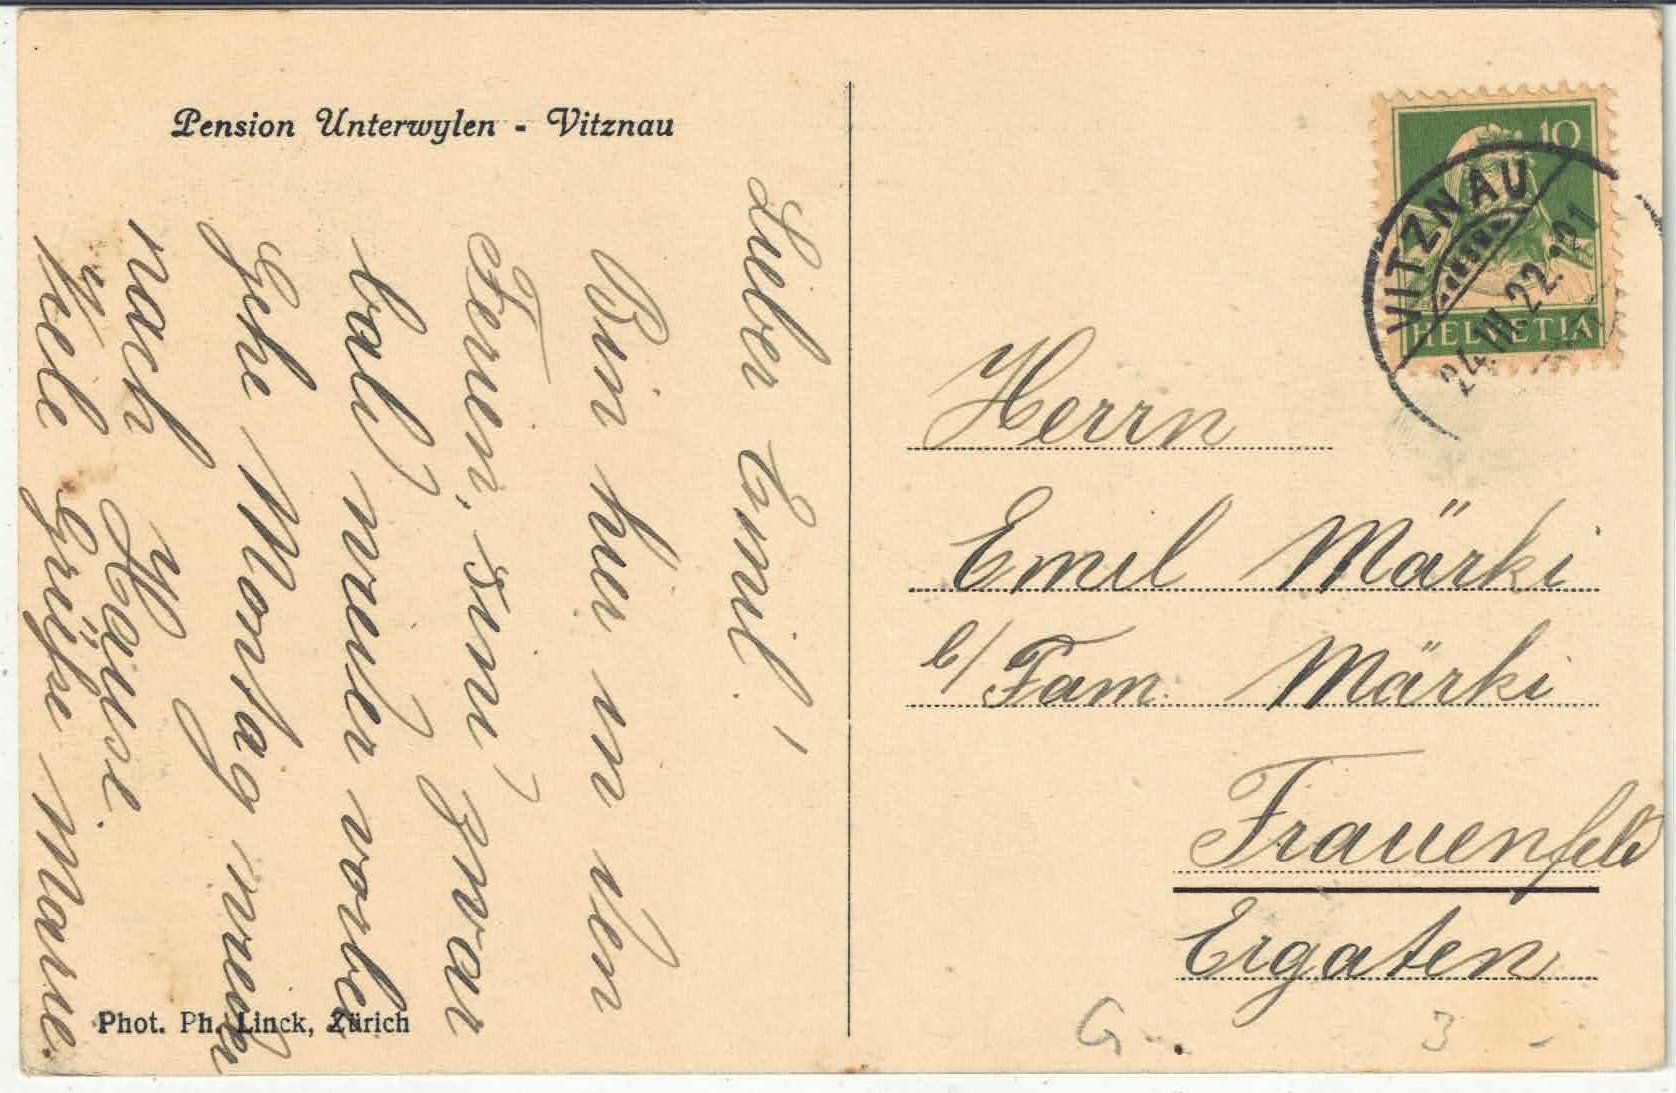 Pension Unterwylen - Vitznau
Lieber Emil!
Bin hier in den
Ferien, sind zwar
bald wieder vorbei
Gehe Montag wieder
nach Hause.
Viele Grüße Marie.
Phot. Ph. Linck, Zürich
10
HELVETIA
VITZNAU
Herrn
Emil Märki
b/ Fam. Märki
Frauenfeld
Ergaten
G. 3 -